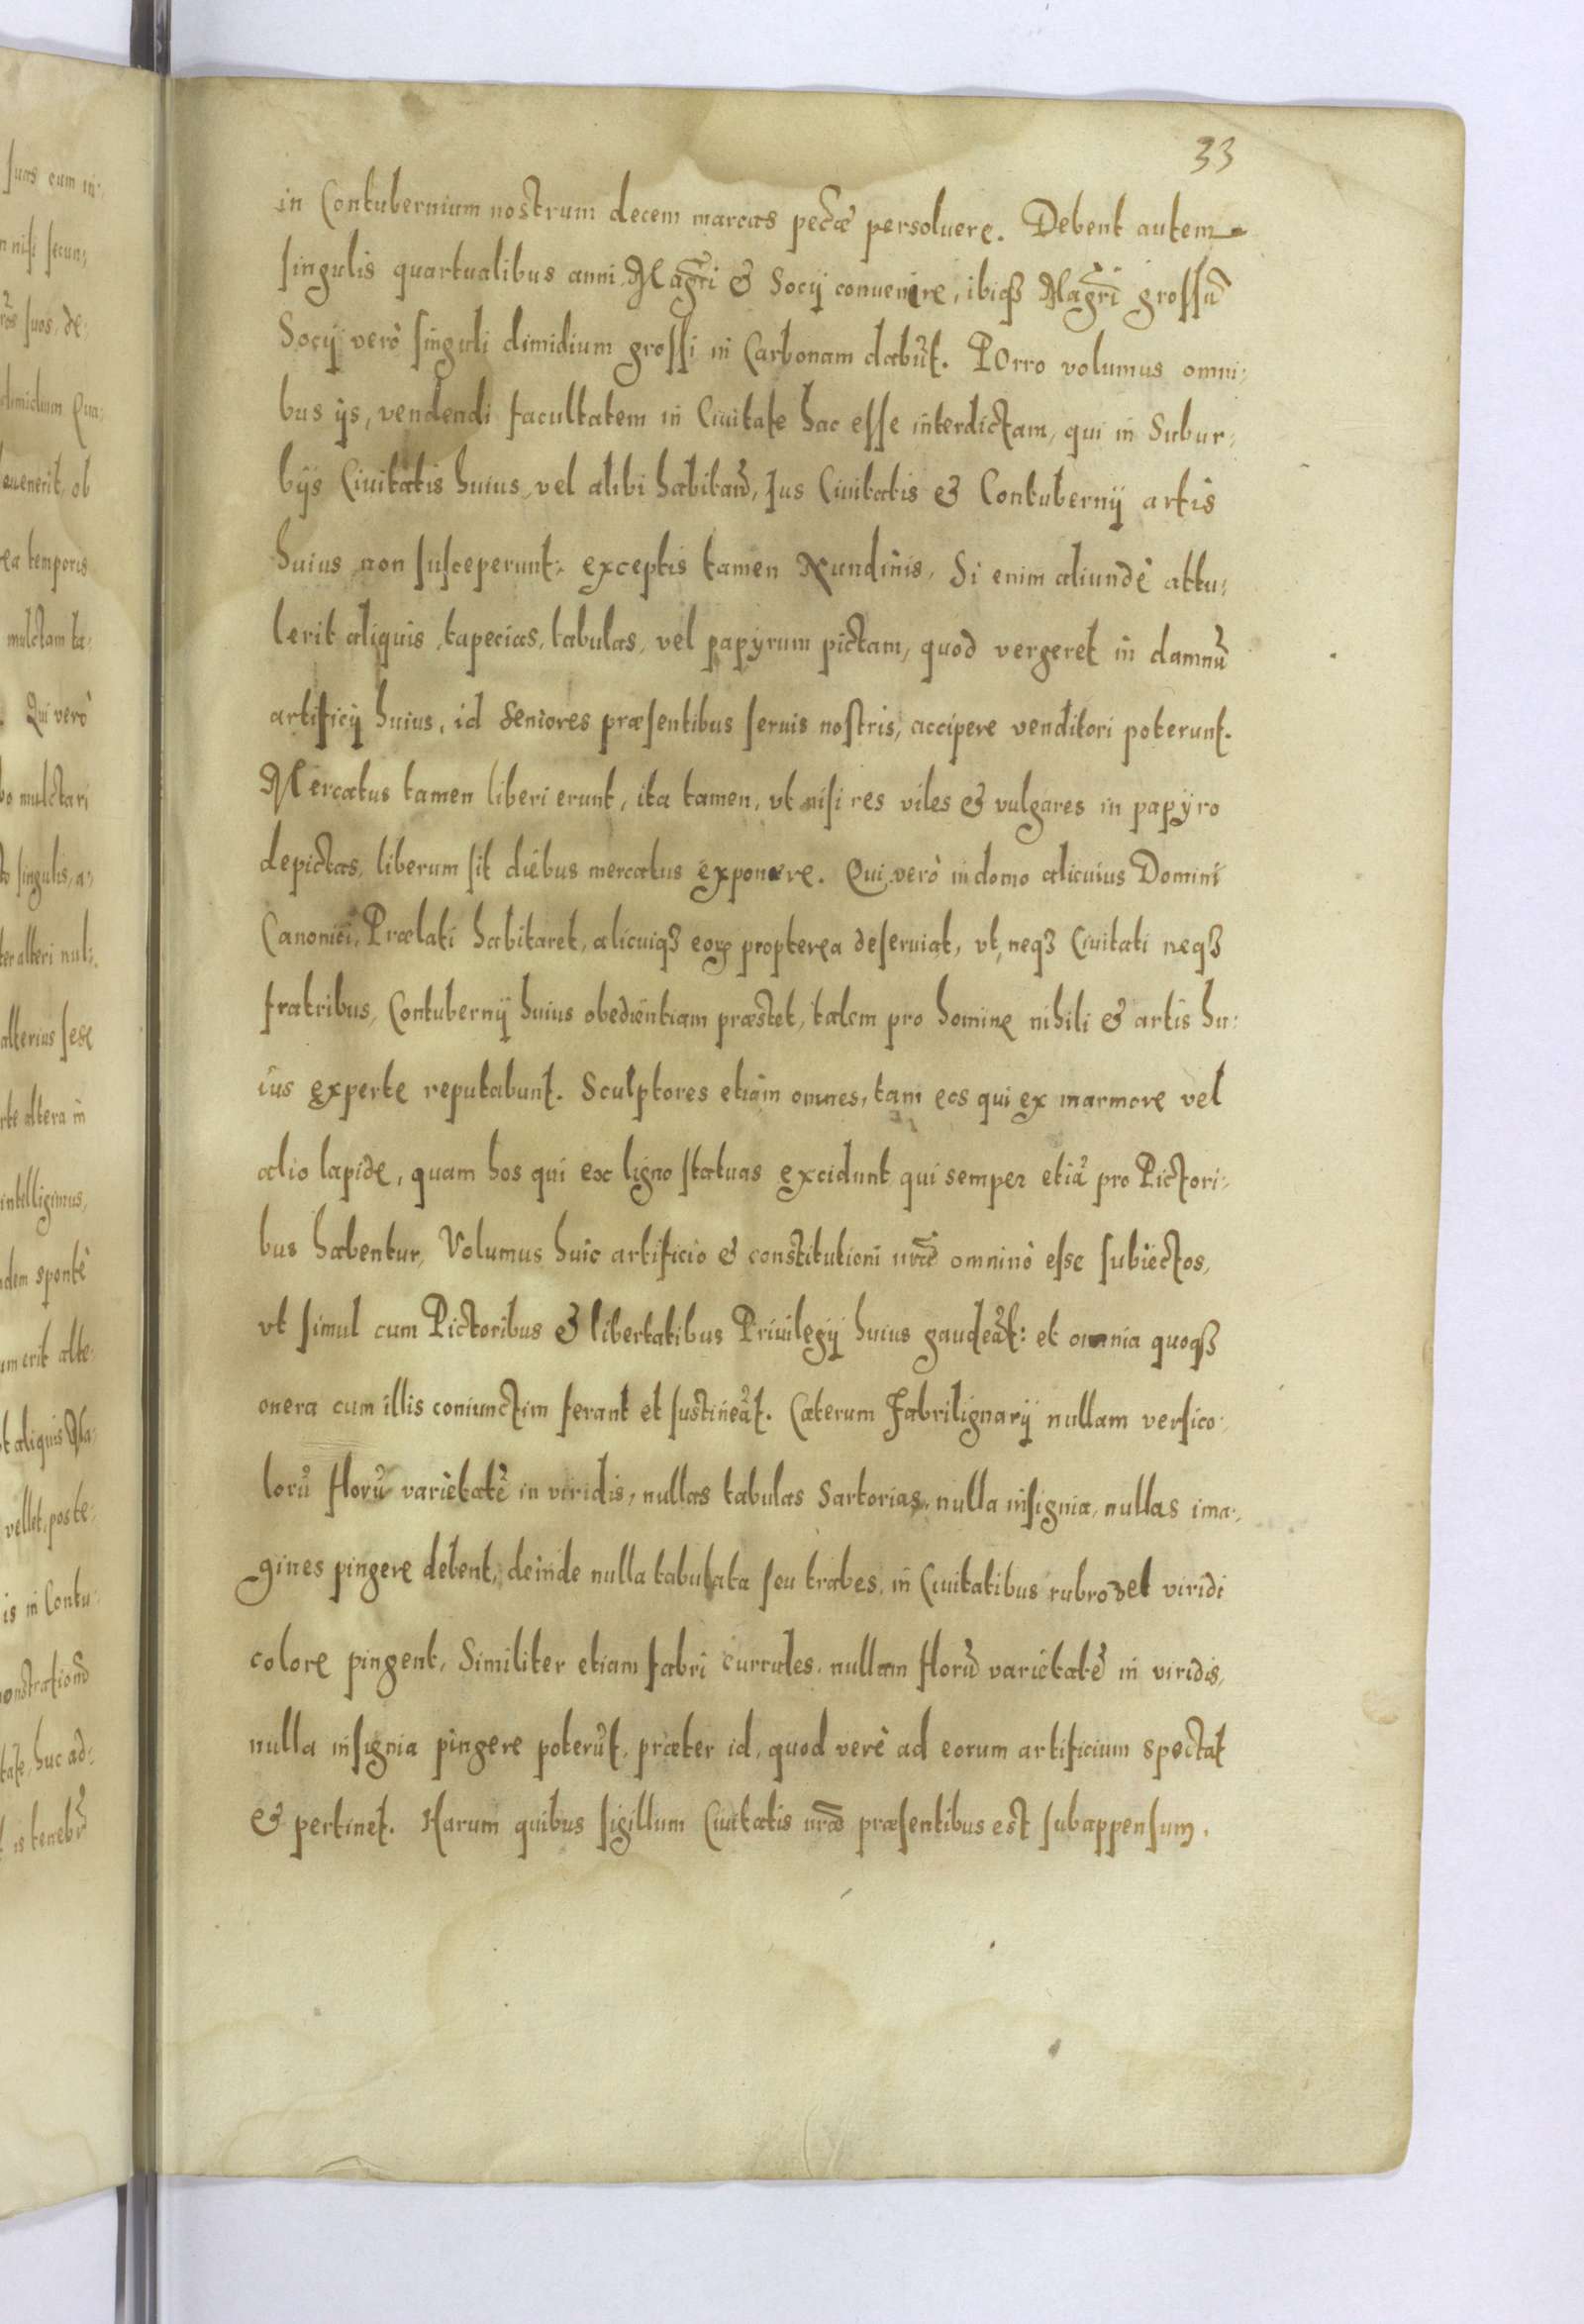 33
in Contubernium nostrum decem marcas pecæ persoluere. Debent autem
singulis quartualibus anni Magri & Socij conuenire, ibiqȝ Magri grossũ
Socij verò singuli dimidium grossi in Carbonam dabũt. POrro volumus omni:
bus ijs, vendendi facultatem in Ciuitate hac esse interdictam, qui in Subur:
bijs Ciuitatis huius, vel alibi habitañ, Jus Ciuitatis & Contubernij artis
huius non susceperunt: exceptis tamen Nundinis, Si enim aliundè attu:
lerit aliquis, tapecias, tabulas, vel papyrum pictam, quod vergeret in damnũ
artificij huius, id Seniores præsentibus seruis nostris, accipere venditori poterunt.
Mercatus tamen liberi erunt, ita tamen, vt nisi res viles & vulgares in papyro
depictas, liberum sit diebus mercatus exponere. Qui verò in domo alicuius Domini
Canonici, Prælati habitaret, alicuiqȝ eoꝝ propterea deseruiat, vt neqȝ Ciuitati neqȝ
fratribus, Contubernij huius obedientiam præstet, talem pro homine nihili & artis hu:
ius experte reputabunt. Sculptores etiam omnes, tam eos qui ex marmore vel
alio lapide, quam hos qui ex ligno statuas excidunt qui semper etiã pro Pictori:
bus habentur, Volumus huic artificio & constitutioni nræ omninò esse subiectos,
vt simul cum Pictoribus & libertatibus Priuilegij huius gaudeãt: et omnia quoqȝ
onera cum illis coniunctim ferant et sustineãt. Cæterum Fabrilignarij nullam versico:
lorũ florũ varietatẽ in viridis, nullas tabulas Sartorias, nulla insignia, nullas ima:
gines pingere debent, deinde nulla tabulata seu trabes, in Ciuitatibus rubro vel viridi
colore pingent, Similiter etiam fabri currules, nullam florũ varietatẽ in viridis,
nulla insignia pingere poterũt, præter id, quod verè ad eorum artificium spectat
& pertinet. Harum quibus sigillum Ciuitatis nræ præsentibus est subappensum.